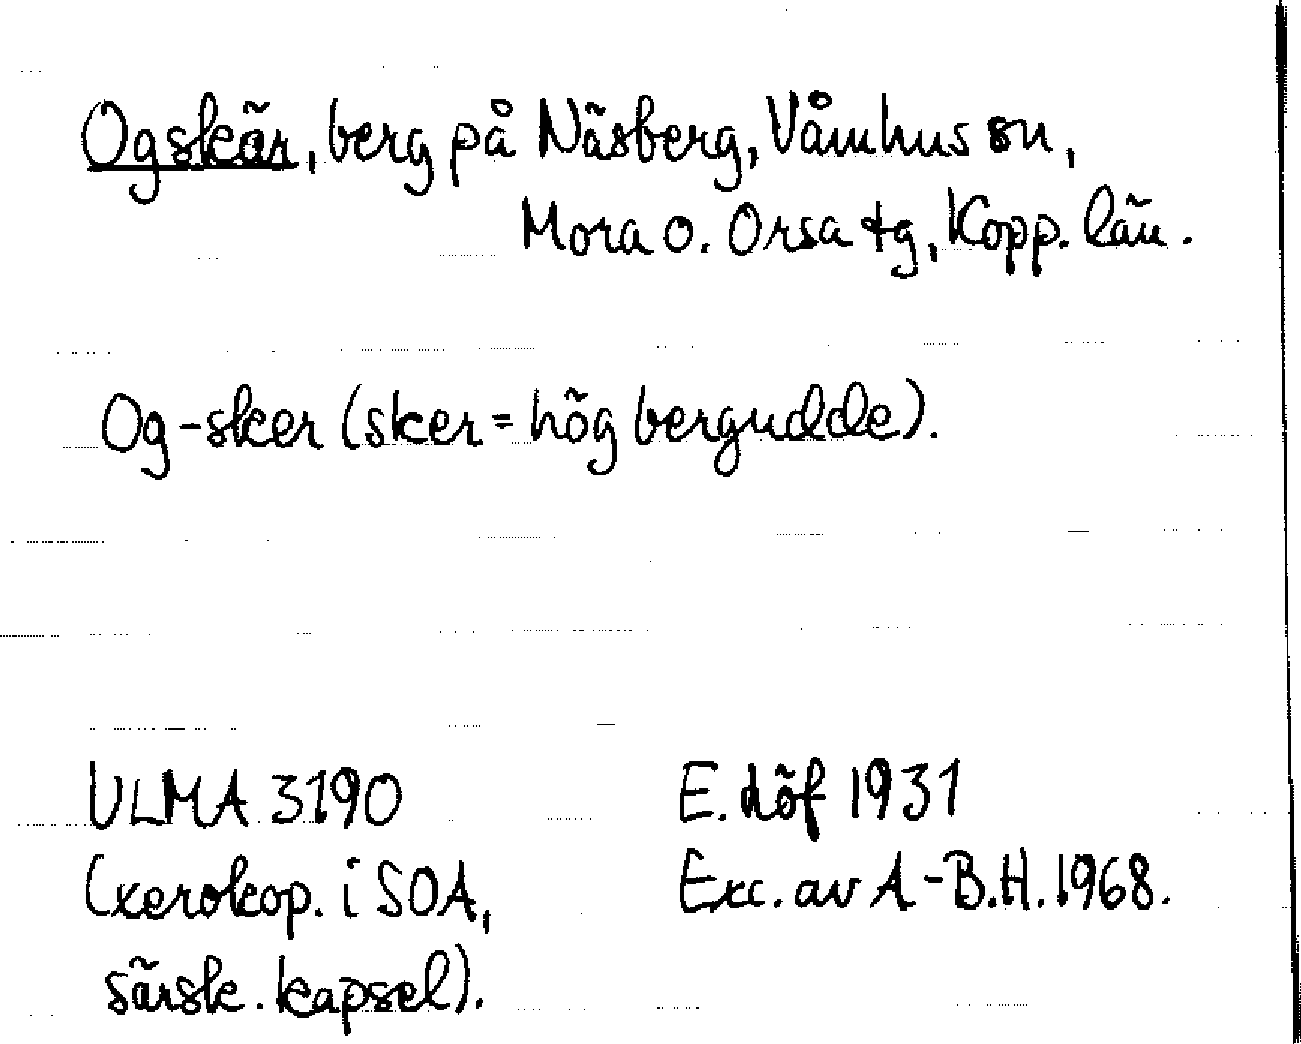 Ogskär, berg på Näsberg, Våmhus sn,
Mora o. Orsa tg, Kopp. län.
Og-sker (sker = hög bergudde).
ULMA 3190
(xerokop. i SOA,
särsk. kapsel).
E. Löf 1931
Exc. av A-B.H. 1968.